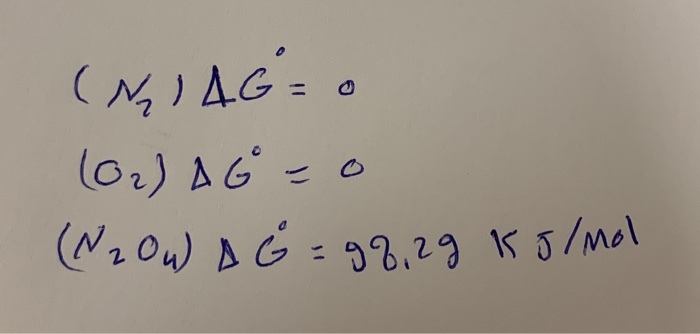 (N₂) ΔG° = 0
(O₂) ΔG° = 0
(N₂O₄) ΔG° = 98.29 KJ/Mol